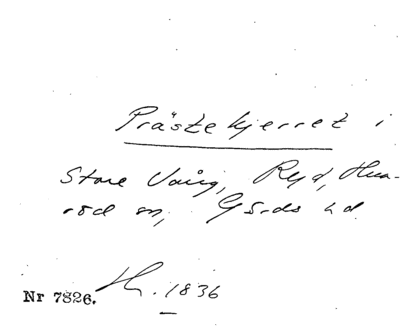 Prästekjerret i
Store Vång, Ryd, Hua-
röd sn, Gärds hd.
Nr 7826. Th. 1836